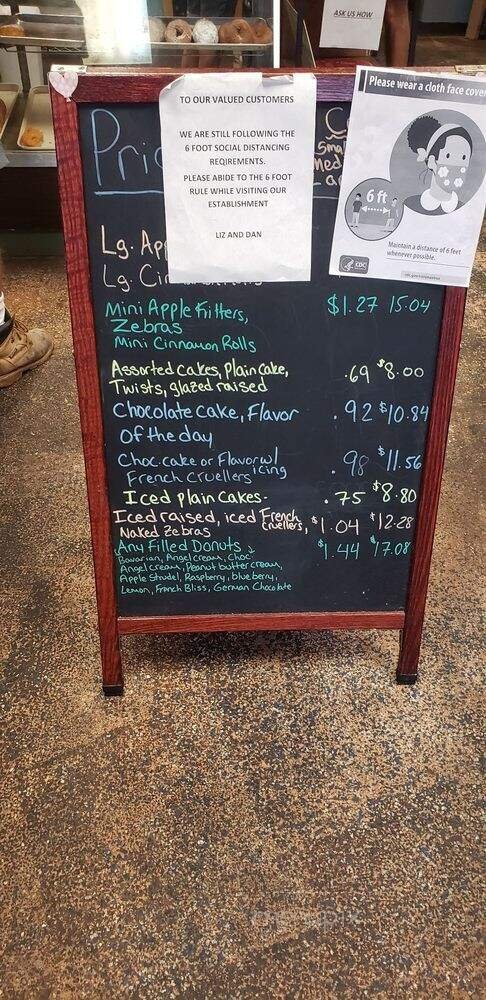 ASK US HOW
Please wear a cloth face cover
TO OUR VALUED CUSTOMERS
WE ARE STILL FOLLOWING THE
6 FOOT SOCIAL DISTANCING
REQIREMENTS.
PLEASE ABIDE TO THE 6 FOOT
RULE WHILE VISITING OUR
ESTABLISHMENT
LIZ AND DAN
6 ft
Maintain a distance of 6 feet
whenever possible.
CDC
Pric
Lg. App
Lg. Cin
Mini Apple Fritters, $1.27 15.04
Zebras
Mini Cinnamon Rolls
Assorted cakes, plain cake, .69 $8.00
Twists, glazed raised
Chocolate cake, Flavor .92 $10.84
of the day
Choc. cake or Flavor w/ icing .98 $11.56
French Cruellers
Iced plain cakes. .75 $8.80
Iced raised, iced French Cruellers, $1.04 $12.28
Naked Zebras
Any Filled Donuts $1.44 17.08
Bavarian, Angel cream, Choc.
Angel cream, Peanut butter cream,
Apple Strudel, Raspberry, blueberry,
Lemon, French Bliss, German Chocolate